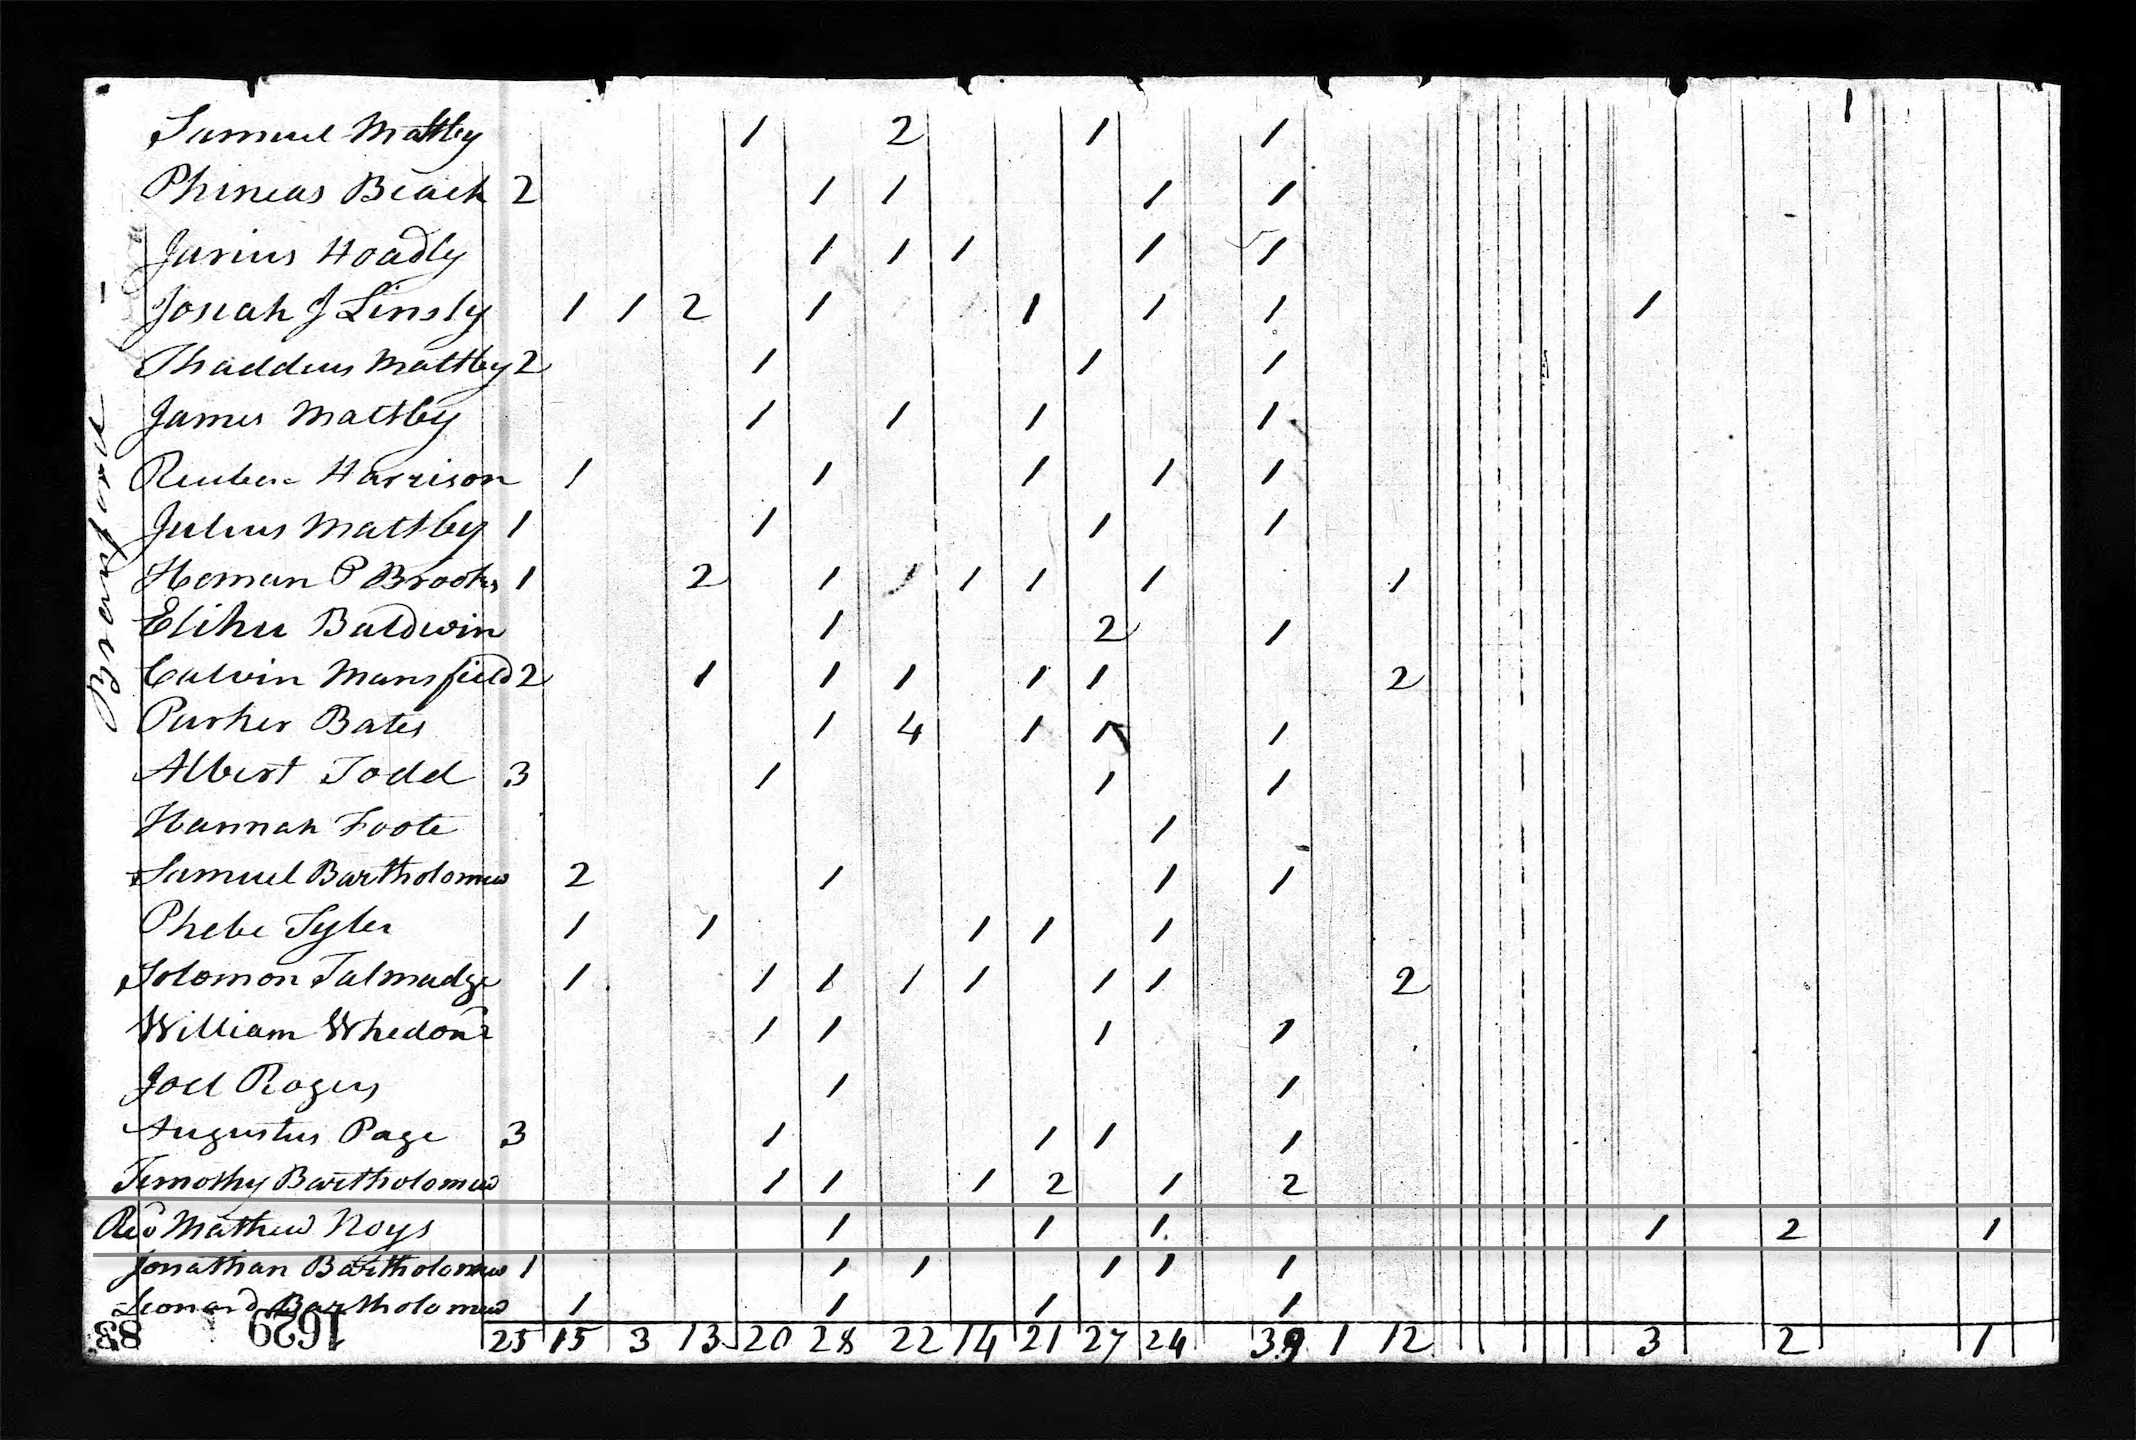 Samuel Maltby 1 2 1 1
Phineas Beach 2 1 1 1 1
Jarius Hoadly 1 1 1 1 1
Josiah J Linsly 1 1 2 1 1 1 1 1
Thaddeus Maltby 2 1 1 1
James Maltby 1 1 1 1
Reuben Harrison 1 1 1 1 1
Julius Maltby 1 1 1 1
Heman P Brooks 1 2 1 1 1 1 1 1
Elihu Baldwin 1 2 1
Calvin Mansfield 2 1 1 1 1 1 2
Parker Bates 1 4 1 1 1
Albert Todd 3 1 1 1
Hannah Foote 1
Samuel Bartholomew 2 1 1 1
Phebe Tyler 1 1 1 1 1
Solomon Talmadge 1 1 1 1 1 1 1 2
William Whedon 2 1 1 1 1
Joel Rogers 1 1
Augustus Page 3 1 1 1 1
Timothy Bartholomew 1 1 1 2 1 2
Rev Mathew Noys 1 1 1 1 2 1
Jonathan Bartholomew 1 1 1 1 1 1
Leonard Bartholomew 1 1 1 1
25 15 3 13 20 28 22 14 21 27 24 39 1 12 3 2 1
Branford
1629
83